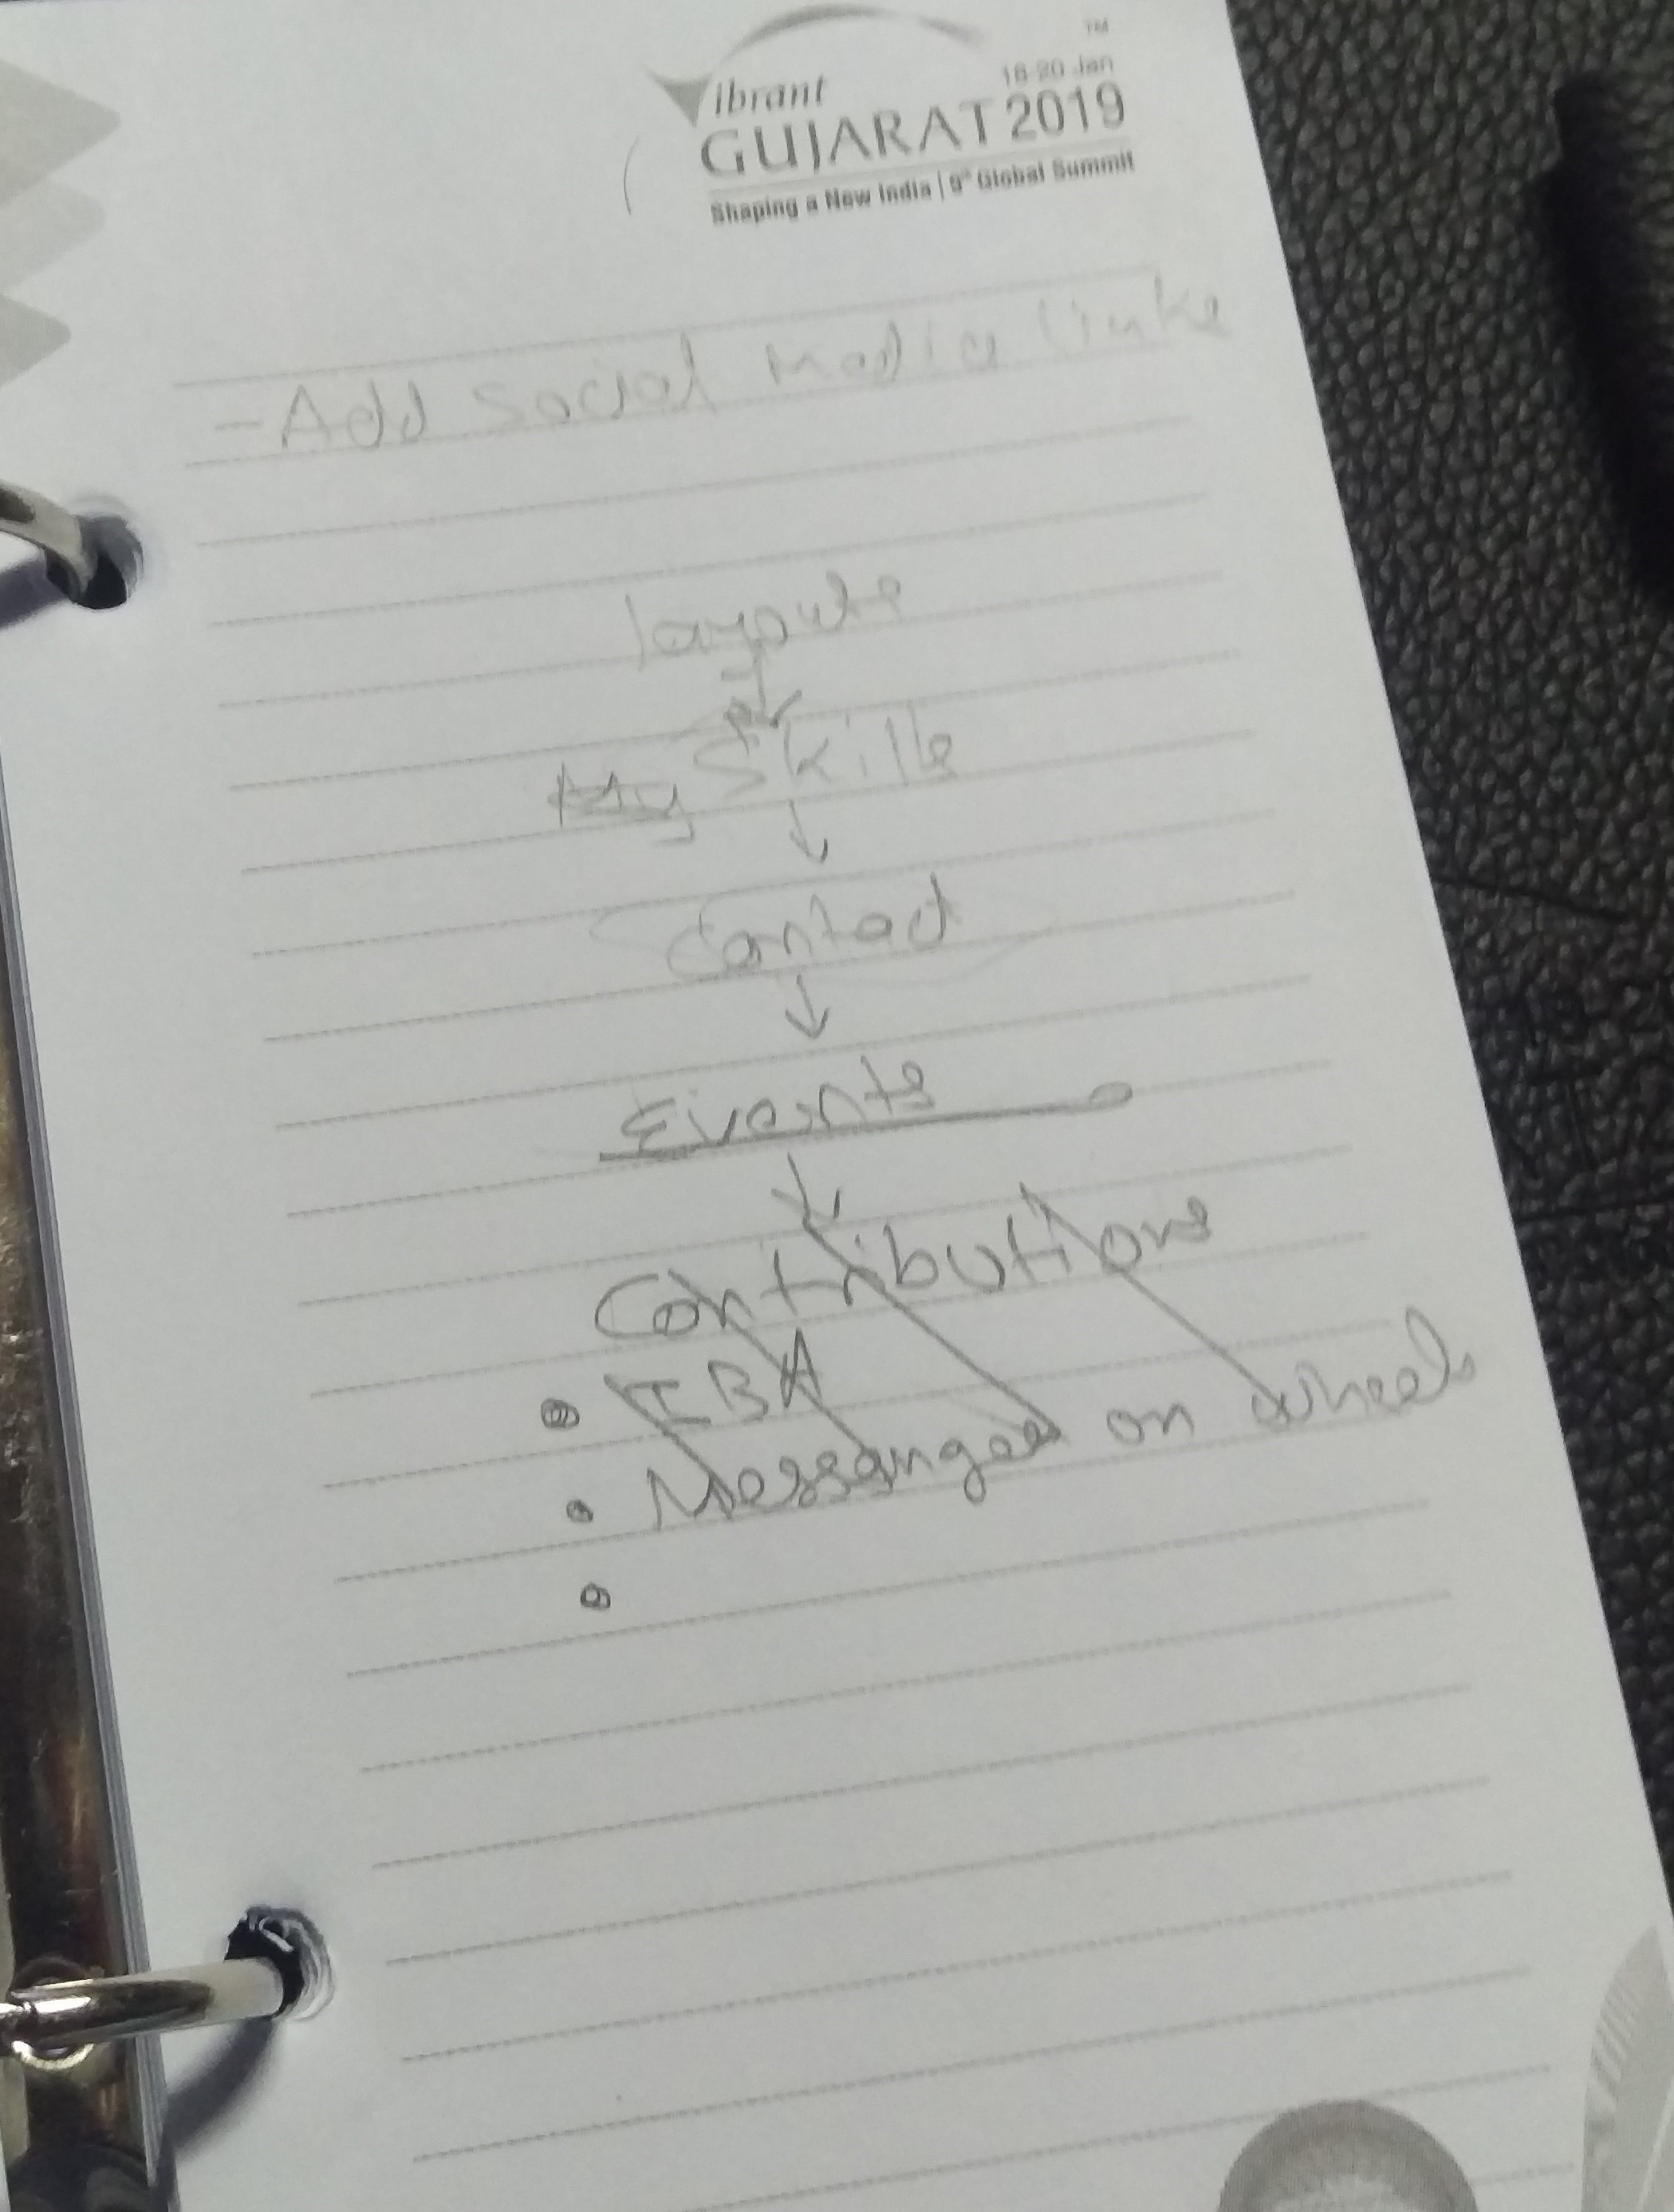 TM
Vibrant 18-20 Jan
GUJARAT 2019
Shaping a New India | 9th Global Summit
- Add social media links
layouts
↓
My Skills
↓
Contact
↓
Events
↓
Contributions
• IBA
• Messanger on wheels
•